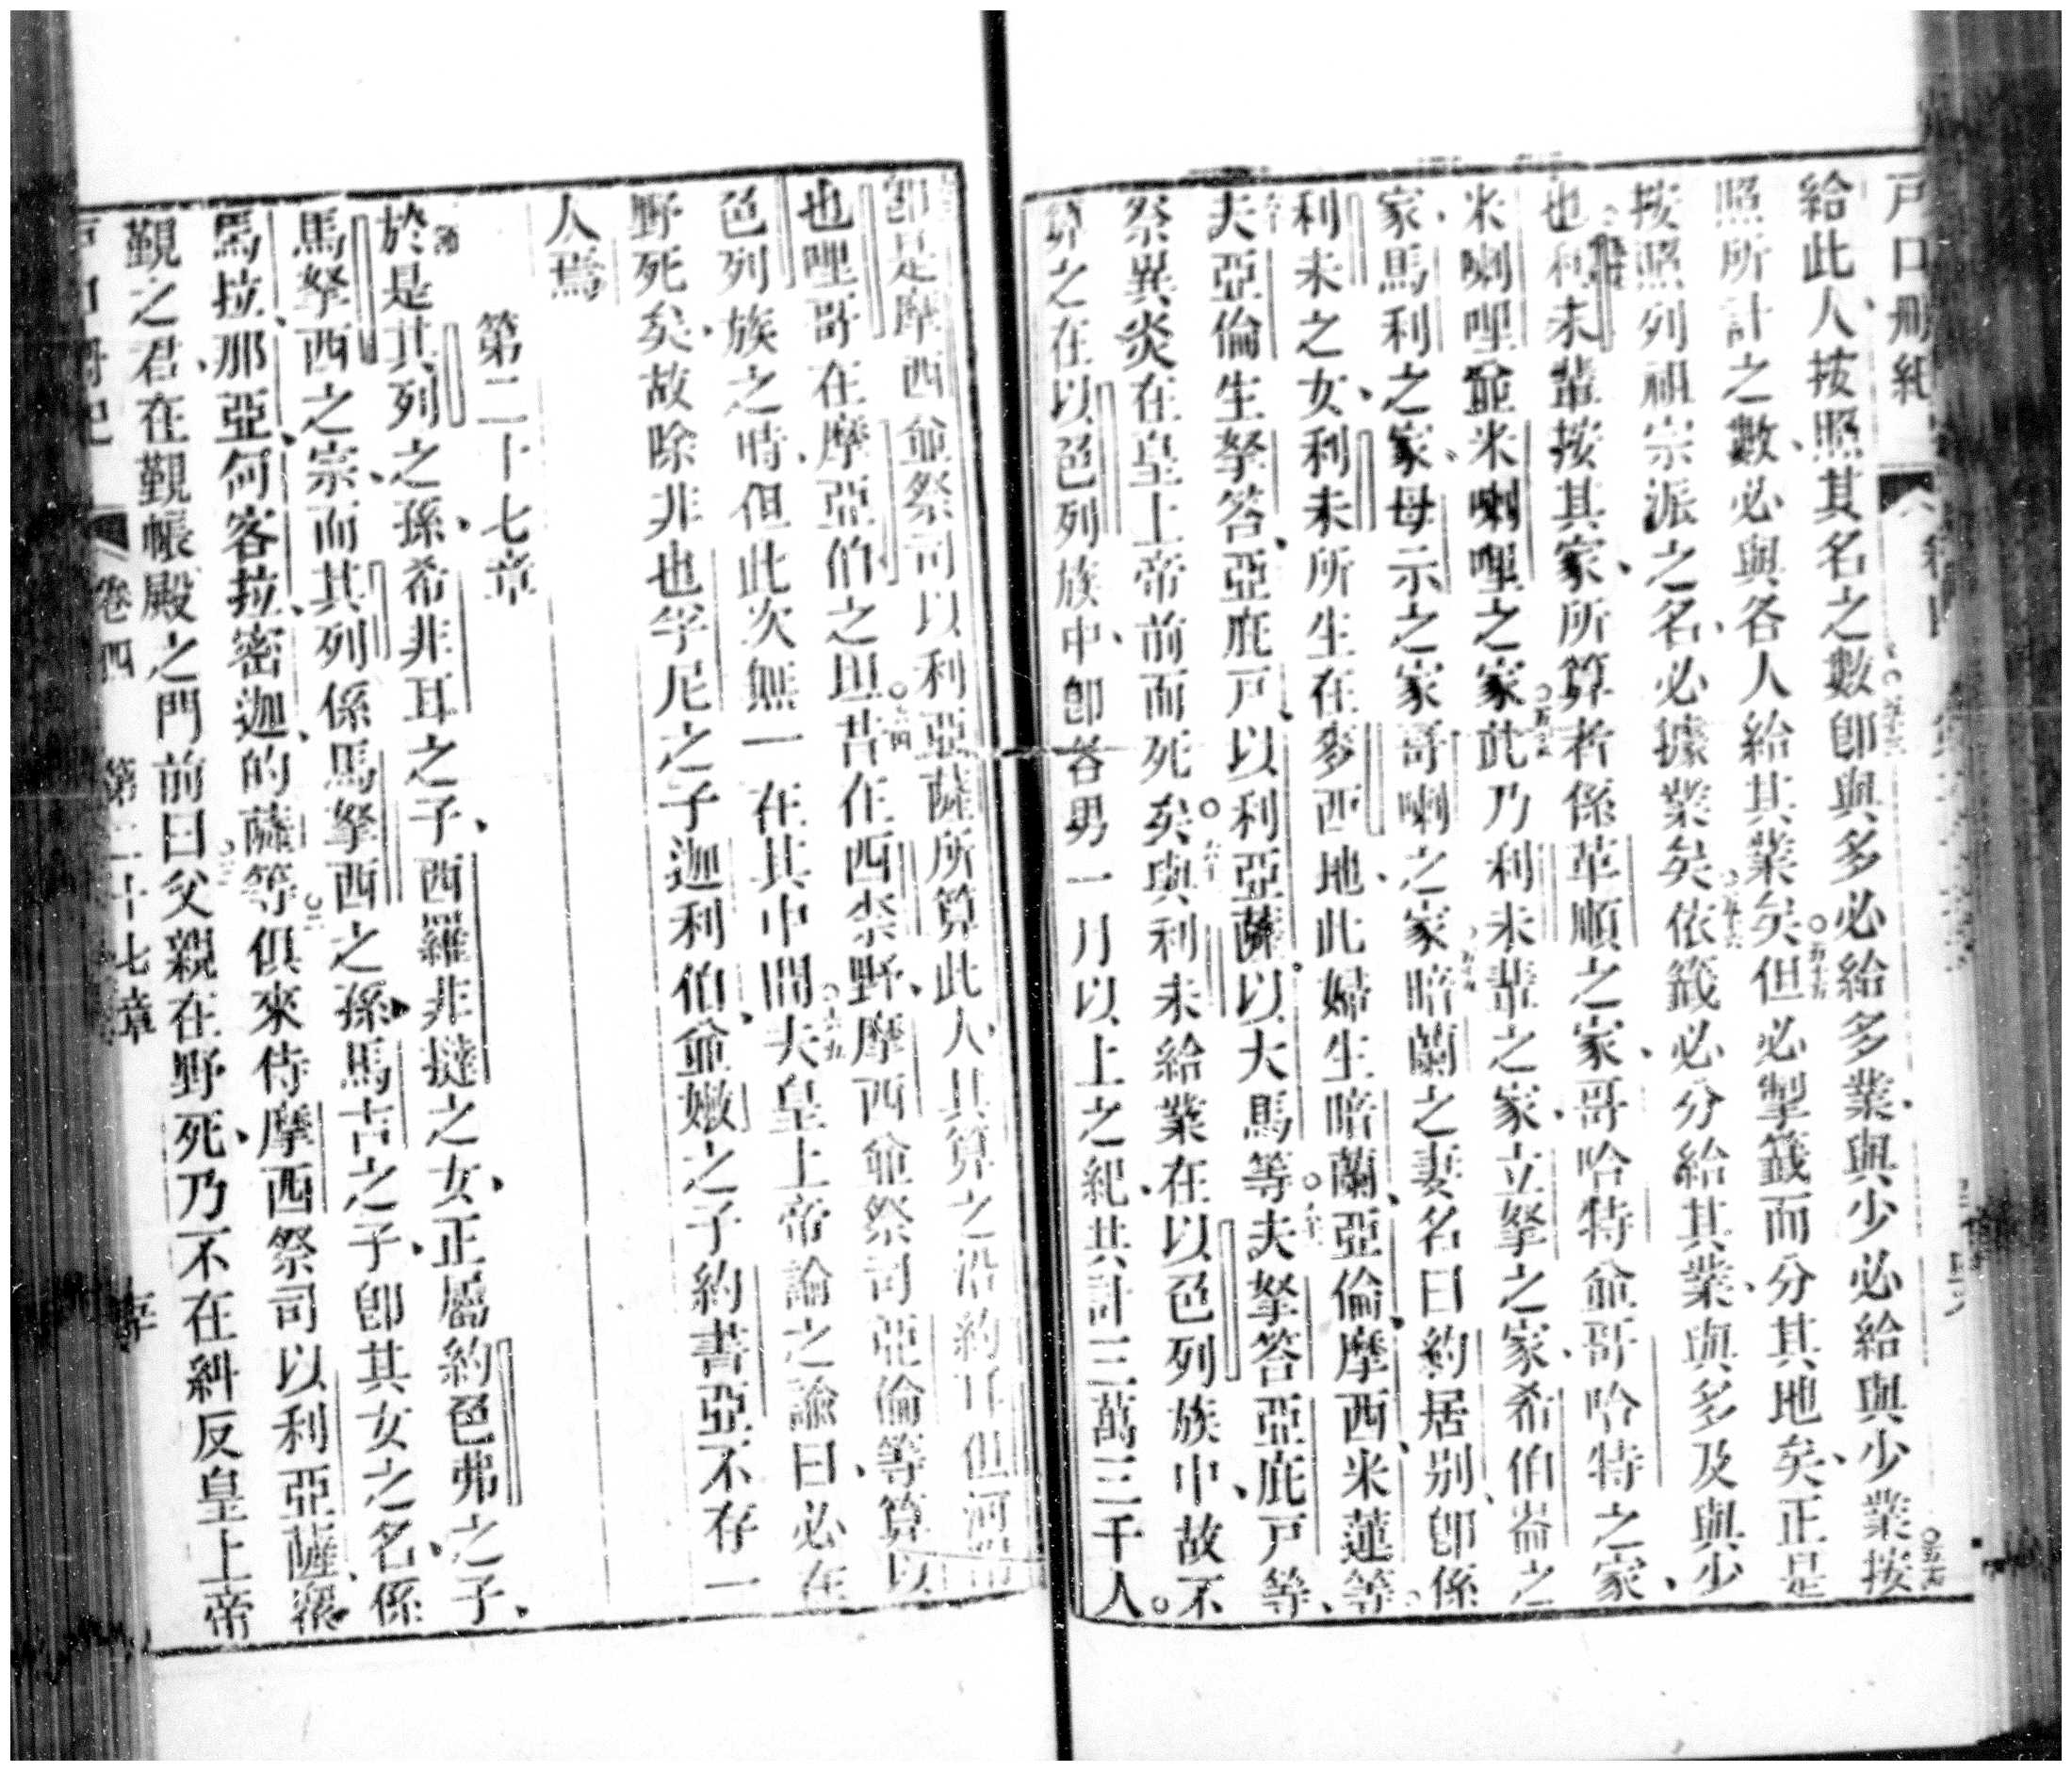 戸口册紀
給此人、按照其名之數卽與多必給多業、與少必給與少業按
照所計之數、必與各人給其業矣○但必掣籤而分其地矣、正是
按照列祖宗派之名、必據業矣依籤必分給其業、與多及與少
也利未輩按其家、所算者係革順之家、哥哈特爺哥哈特之家、
米喇哩爺米喇哩之家○此乃利未輩之家、立拏之家、希伯崙之
家、馬利之家、母示之家哥喇之家暗蘭之妻名曰約居别、卽係
利未之女、利未所生在麥西地、此婦生暗蘭、亞倫摩西、米蓮等。
夫亞倫生拏答、亞庇戸、以利亞薩。以大馬等○夫拏答亞庇戸等、
祭異炎在皇上帝前而死矣○與利未給業在以色列族中、故不
算之在以色列族中、卽各男一月以上之紀、共計二三萬三千人。
卽是摩西爺祭司以利亞薩所算此人、其算之沿約耳但河
也哩哥在摩亞伯之坦○昔在西柰野、摩西爺祭司亞倫等算以
色列族之時、但此次無一在其中間○夫皇上帝諭之諭曰、必在
野死矣、故除非也孚尼之子迦利伯、爺嫩之子約書亞不存一
人焉
第二十七章
於是其列之孫、希非耳之子、西羅非撻之女、正屬約色弗之子、
馬拏西之宗、而其列係馬拏西之孫、馬吉之子、卽其女之名、係
馬拉、那亞、何客拉、密迦、的薩等○俱來侍摩西祭司以利亞薩、
覲之君、在覲帳殿之門前曰○父親在野死、乃不在糾反皇上帝
卷四 第二十七章